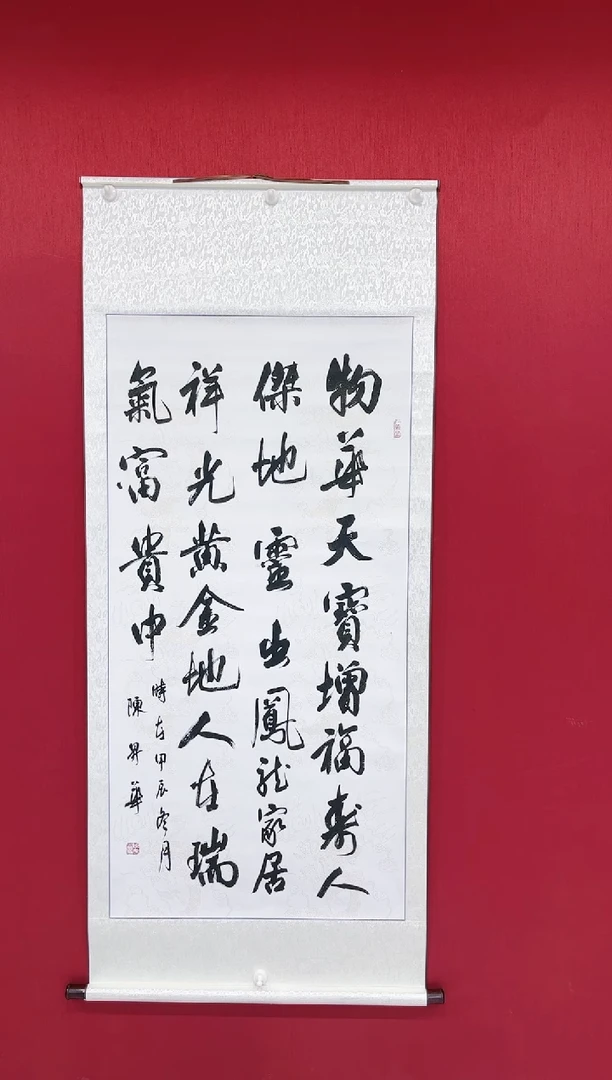 物華天寶增福壽人
傑地靈出鳳龙家居
祥光黄金地人在瑞
氣富貴中
時在甲辰冬月
陳昇華